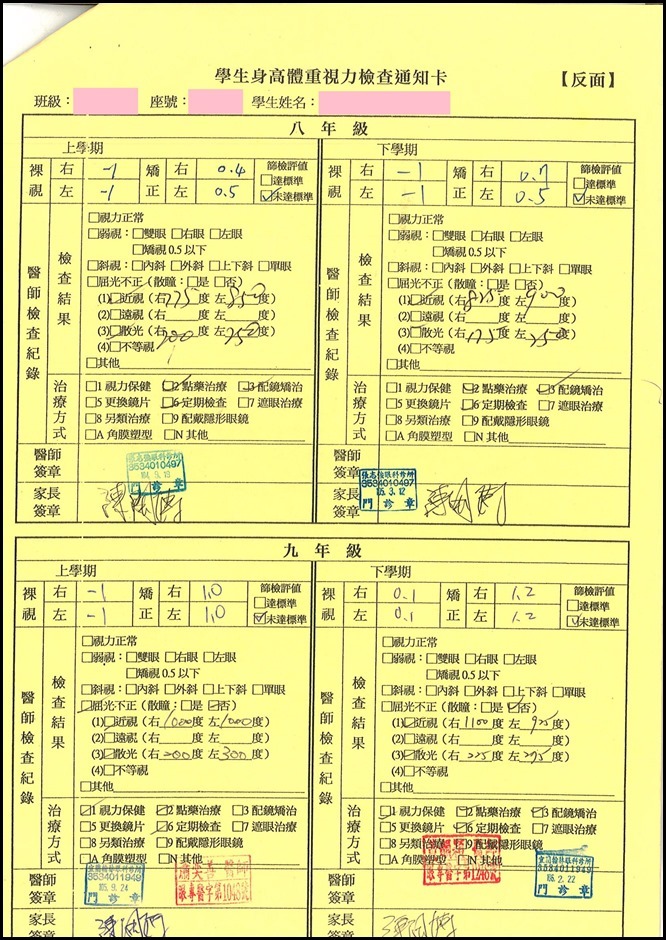 學生身高體重視力檢查通知卡 【反面】
班級： 座號： 學生姓名：
八年級
上學期
裸視 右 -1 矯正 右 0.4 篩檢評值
左 -1 左 0.5 □達標準
☑未達標準
醫師檢查紀錄
檢查結果
□視力正常
□弱視：□雙眼 □右眼 □左眼
□矯視0.5以下
□斜視：□內斜 □外斜 □上下斜 □單眼
□屈光不正（散瞳：□是 □否）
(1)□近視（右775度 左850度）
(2)□遠視（右 度 左 度）
(3)□散光（右200度 左250度）
(4)□不等視
□其他
治療方式
□1 視力保健 ☑2 點藥治療 ☑3 配鏡矯治
□5 更換鏡片 ☑6 定期檢查 □7 遮眼治療
□8 另類治療 □9 配戴隱形眼鏡
□A 角膜塑型 □N 其他
醫師簽章
3534010497
門診章
家長簽章
下學期
裸視 右 -1 矯正 右 0.7 篩檢評值
左 -1 左 0.5 □達標準
☑未達標準
醫師檢查紀錄
檢查結果
□視力正常
□弱視：□雙眼 □右眼 □左眼
□矯視0.5以下
□斜視：□內斜 □外斜 □上下斜 □單眼
□屈光不正（散瞳：□是 □否）
(1)□近視（右825度 左900度）
(2)□遠視（右 度 左 度）
(3)□散光（右175度 左250度）
(4)□不等視
□其他
治療方式
□1 視力保健 ☑2 點藥治療 ☑3 配鏡矯治
□5 更換鏡片 ☑6 定期檢查 □7 遮眼治療
□8 另類治療 □9 配戴隱形眼鏡
□A 角膜塑型 □N 其他
醫師簽章
3534010497
105.3.12
門診章
家長簽章
九年級
上學期
裸視 右 -1 矯正 右 1.0 篩檢評值
左 -1 左 1.0 □達標準
☑未達標準
醫師檢查紀錄
檢查結果
□視力正常
□弱視：□雙眼 □右眼 □左眼
□矯視0.5以下
□斜視：□內斜 □外斜 □上下斜 □單眼
☑屈光不正（散瞳：□是 ☑否）
(1)☑近視（右1000度 左1000度）
(2)□遠視（右 度 左 度）
(3)☑散光（右200度 左300度）
(4)□不等視
□其他
治療方式
☑1 視力保健 ☑2 點藥治療 □3 配鏡矯治
□5 更換鏡片 ☑6 定期檢查 □7 遮眼治療
□8 另類治療 □9 配戴隱形眼鏡
□A 角膜塑型 □N 其他
醫師簽章
3534011949
105.9.24
門診章
眼專醫字第1048號
家長
下學期
裸視 右 0.1 矯正 右 1.2 篩檢評值
左 0.1 左 1.2 □達標準
☑未達標準
醫師檢查紀錄
檢查結果
□視力正常
□弱視：□雙眼 □右眼 □左眼
□矯視0.5以下
□斜視：□內斜 □外斜 □上下斜 □單眼
☑屈光不正（散瞳：□是 ☑否）
(1)☑近視（右1100度 左925度）
(2)□遠視（右 度 左 度）
(3)☑散光（右225度 左275度）
(4)□不等視
□其他
治療方式
☑1 視力保健 ☑2 點藥治療 ☑3 配鏡矯治
□5 更換鏡片 ☑6 定期檢查 □7 遮眼治療
□8 另類治療 □9 配戴隱形眼鏡
□A 角膜塑型 □N 其他
醫師簽章
3534011949
106.2.22
門診章
家長